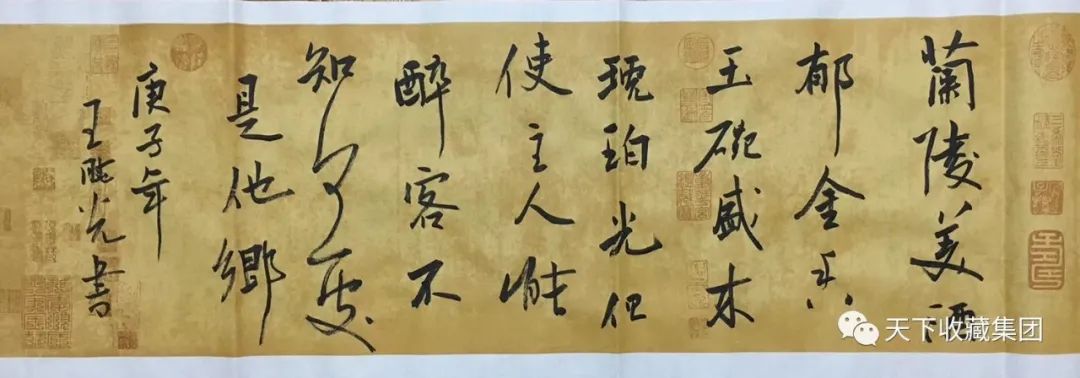 蘭陵美酒
郁金香
玉碗盛来
琥珀光但
使主人能
醉客不
知何处
是他鄉
庚子年
王光書
天下收藏集团